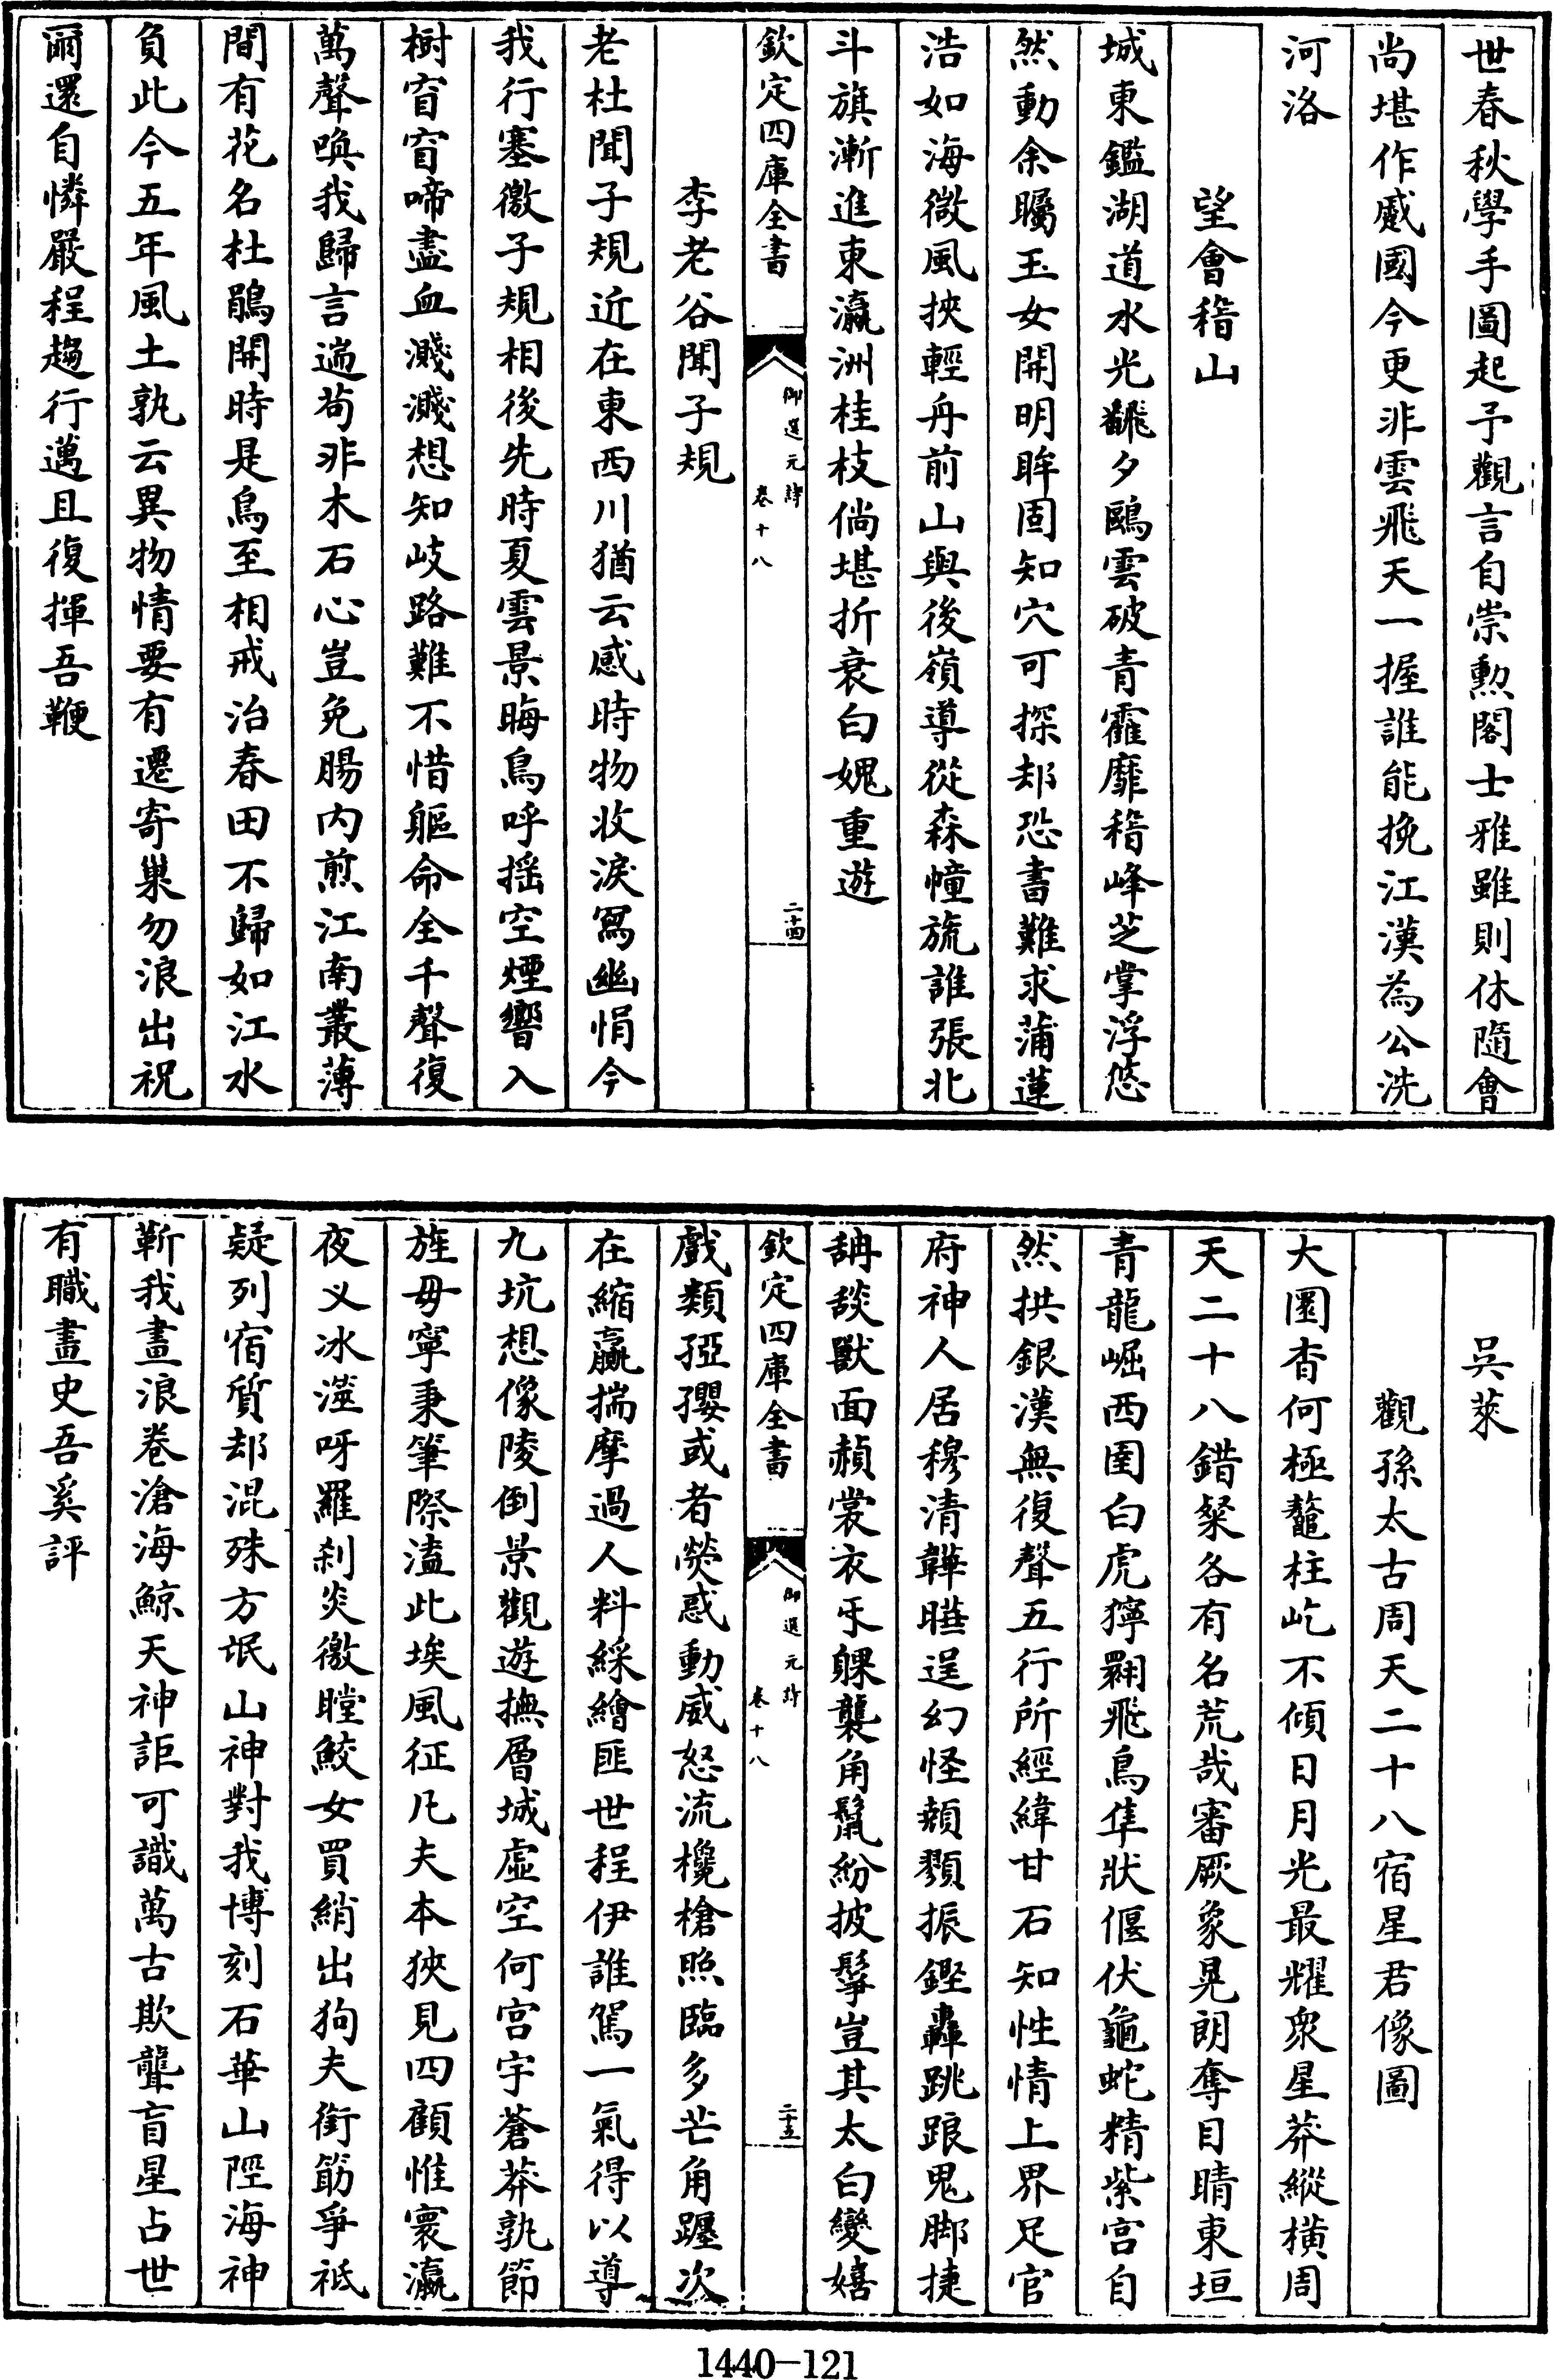 世春秋學手圖起予觀言自崇勲閣士雅雖則休隨會
尚堪作蹙國今更非雲飛天一握誰能挽江漢為公洗
河洛
望會稽山
城東鑑湖道水光翻夕鷗雲破青霍靡稽峰芝掌浮悠
然動余矚玉女開明眸固知穴可探却恐書難求蒲蓮
浩如海微風挾輕舟前山與後嶺導從森幢旒誰張北
斗旗漸進東瀛洲桂枝倘堪折衰白媿重遊
欽定四庫全書
御選元詩
卷十八
二十四
李老谷聞子規
老杜聞子規近在東西川猶云感時物收淚寫幽悁今
我行塞徼子規相後先時夏雲景晦鳥呼揺空煙響入
樹窅窅啼盡血濺濺想知岐路難不惜軀命全千聲復
萬聲喚我歸言遄茍非木石心豈免腸内煎江南叢薄
間有花名杜鵑開時是鳥至相戒治春田不歸如江水
負此今五年風土孰云異物情要有遷寄巢勿浪出祝
爾還自憐嚴程趨行邁且復揮吾鞭
吳萊
觀孫太古周天二十八宿星君像圖
大圜杳何極鼇柱屹不傾日月光最耀衆星莽縱横周
天二十八錯粲各有名荒哉審厥象晃朗奪目睛東垣
青龍崛西圉白虎獰翾飛鳥隼狀偃伏龜蛇精紫宫自
然拱銀漢無復聲五行所經緯甘石知性情上界足官
府神人居穆清鞾䁙逞幻怪頰顟振鏗轟跳踉鬼脚捷
舑舕獸面赬裳衣牙躶襲角鬣紛披髼豈其太白變嬉
欽定四庫全書
御選元詩
卷十八
二十五
戲類孲㜸或者熒惑動威怒流欃槍照臨多芒角躔次
在縮贏揣摩過人料綵繪匪世程伊誰駕一氣得以導
九坑想像陵倒景觀遊撫層城虛空何宫宇蒼莽孰節
旌毋寧秉筆際溘此埃風征凡夫本狹見四顧惟寰瀛
夜义冰滋呀羅刹炎徼瞠鮫女買綃出狗夫銜筯爭祗
疑列宿質却混殊方氓山神對我博刻石華山陘海神
蘄我畫浪卷滄海鯨天神詎可識萬古欺聾盲星占世
有職畫史吾奚評
1440—121